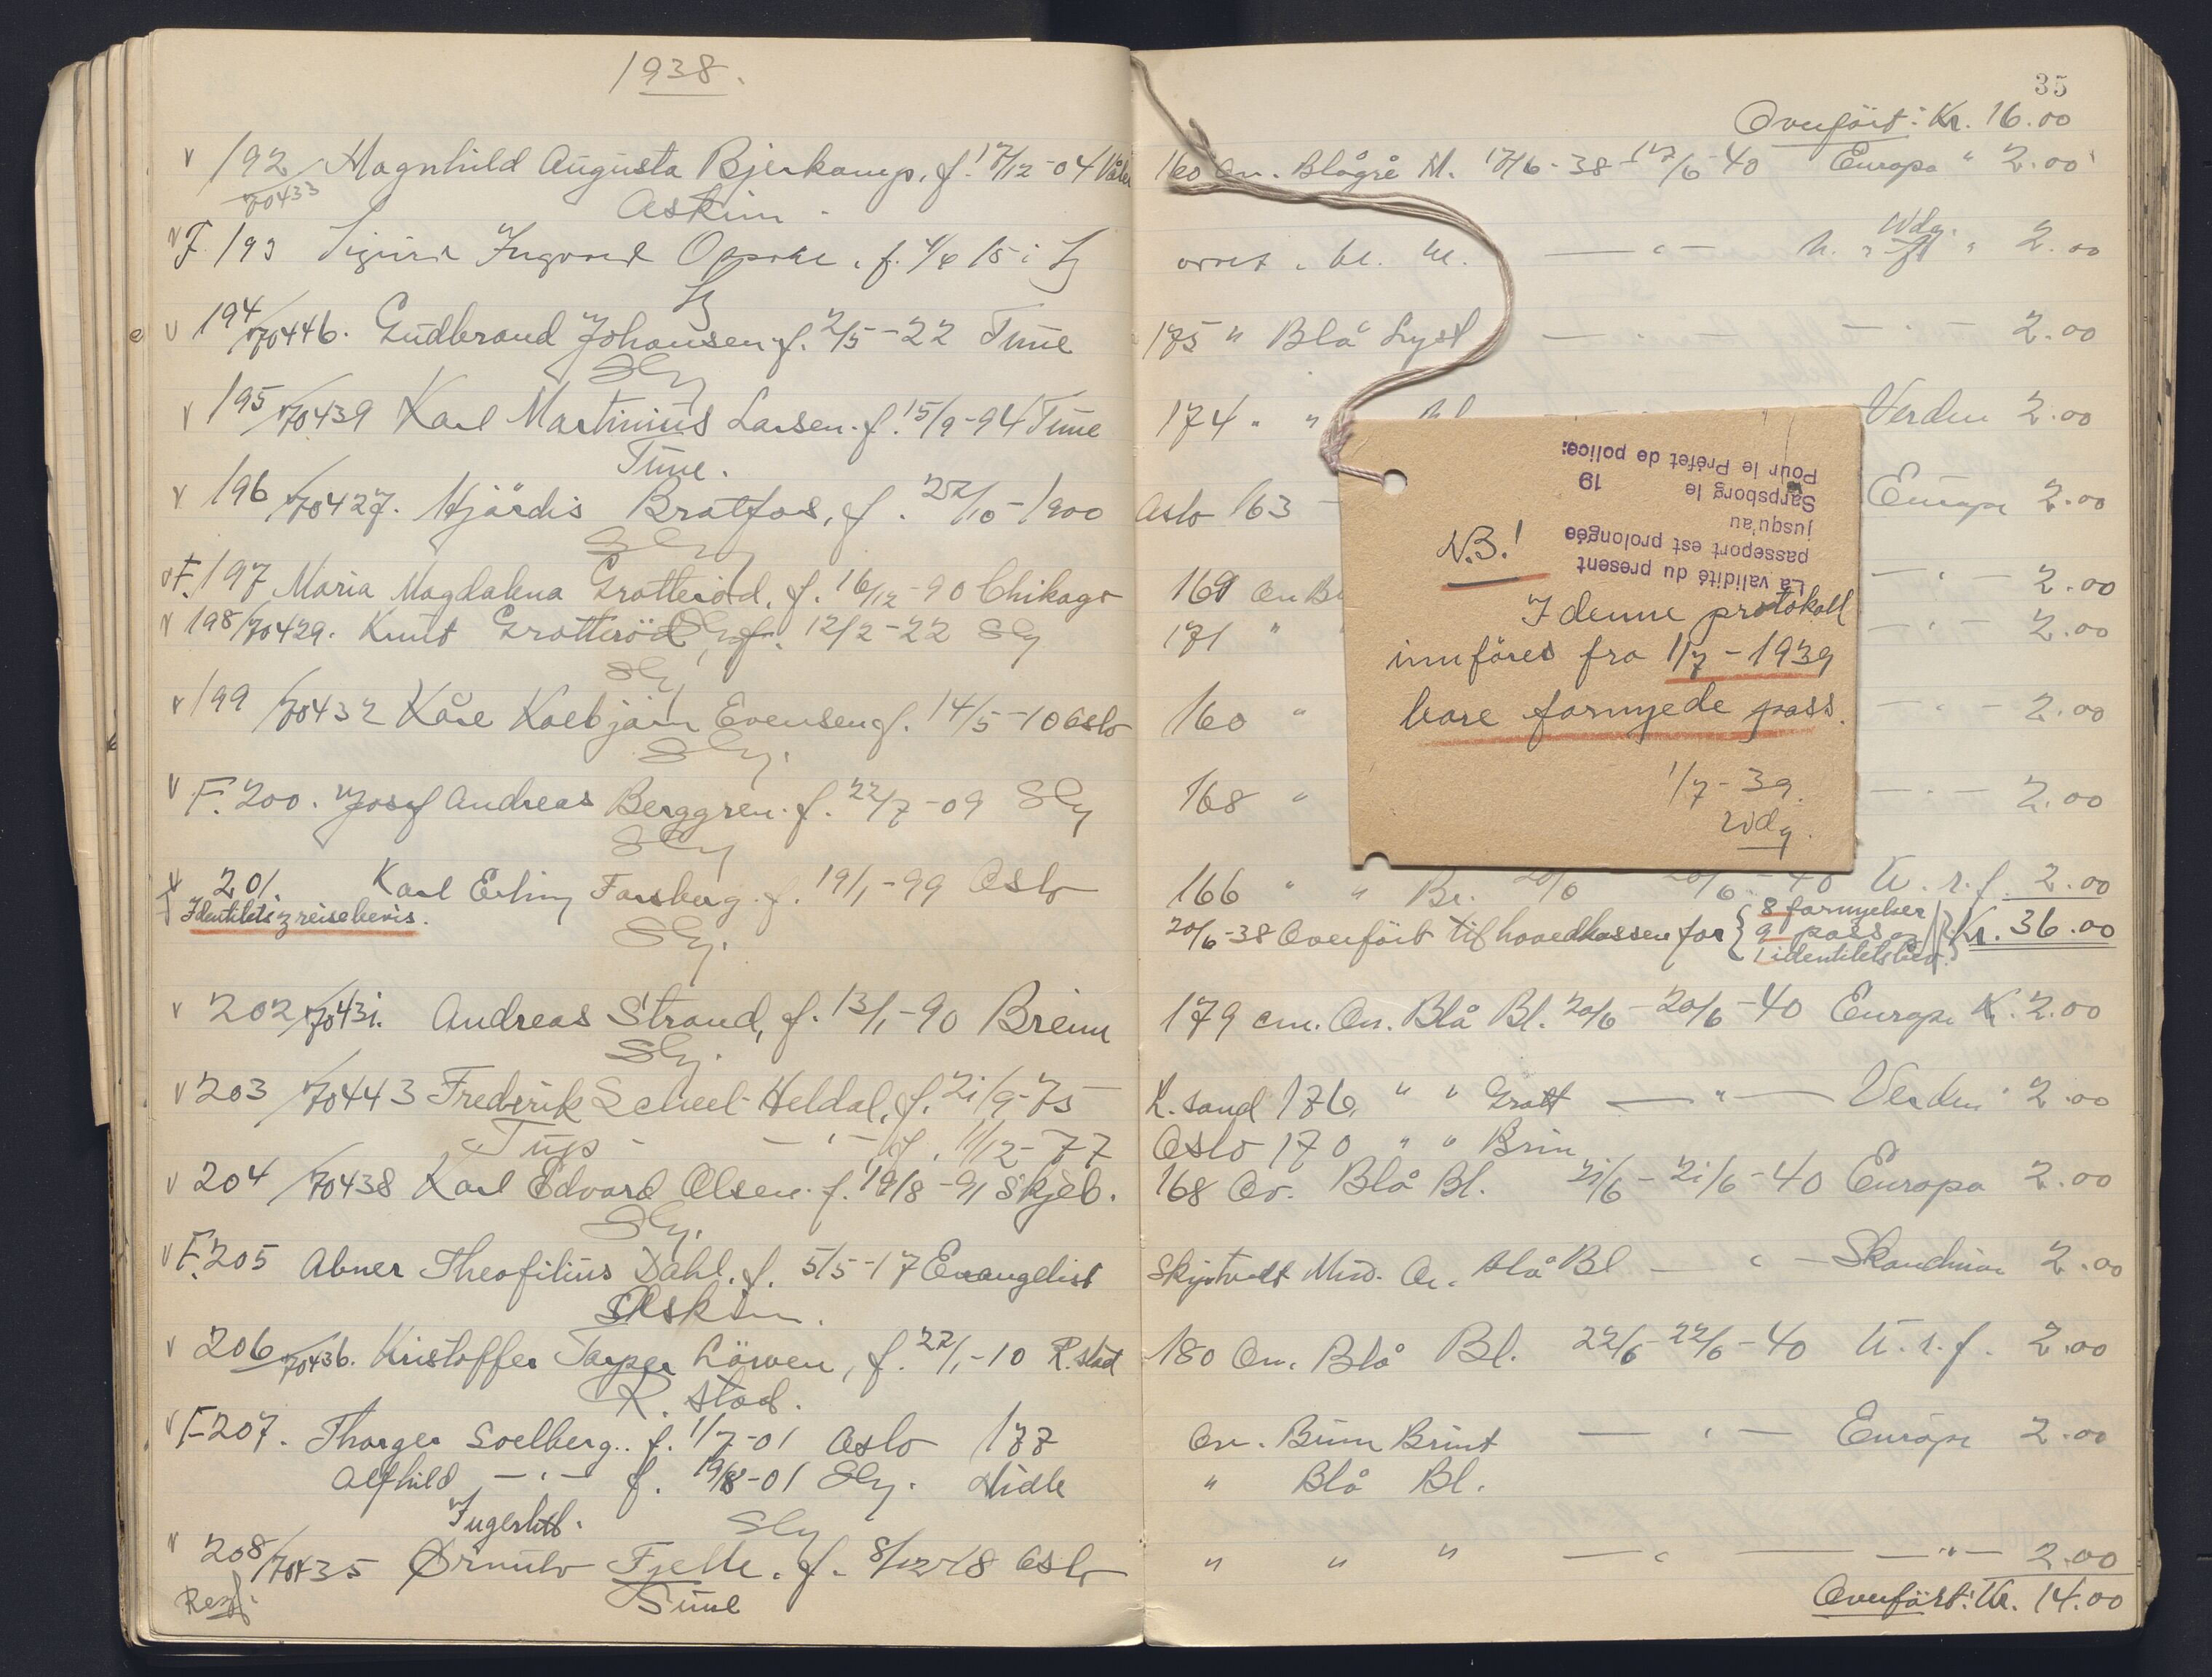 1938.
192/70433 Magnhild Augusta Bjerkamp, f. 17/12-04 Våler
Askim.
F. 193 Ingvard f. 4/6 15 i
194/70446. Gudbrand Johansen f. 2/5-22 Tune
Slg
195/70439 Karl Martinius Larsen. f. 15/9-94 Tune
Tune.
196/70427. Hjördis Bratfos, f. 22/10-1900
Slg
F. 197 Maria Magdalena Grotteröd, f. 16/12-90 Chikago
198/70429. Knut Grotteröd, f. 12/2-22 Slg
Slg
199/70432 Kåre Evensen f. 14/5-10 Oslo
Slg.
F. 200. Josef Andreas Berggren. f. 22/7-09 Slg
Slg
201. Karl Erling Forsberg. f. 19/1-99 Oslo
Identitets reisebevis.
Slg.
202/70431. Andreas Strand, f. 13/1-90 Breim
Slg.
203/70443 Frederik Scheel Heldal, f. 21/9-75
— " — f. 11/12-77
204/70438 Karl Edvard Olsen. f. 19/8-91 Skjeb.
Slg.
F. 205 Abner Theofilius Dahl. f. 5/5-17 Evangelist
Askim.
206/70436. Kristoffer Löwen, f. 22/1-10 R.stad
R. stad.
F 207. Thorger Soelberg.. f. 1/7-01 Oslo 177
Alfhild — " — f. 19/8-01 Slg. Hidle
Slg
208/70435 Ørnulv Fjelle. f. 8/12-18 Oslo
Tune
35
Overfört: Kr. 16.00
160 An. Blågrå M. 17/6-38-17/6-40 Europa " 2.00
ovret . bl. M. — " — Wdg. " 2.00
175 " Blå Lyst — " — — " — 2.00
174 " " Verden 2.00
Oslo 163 Europa 2.00
169 An Bl — " — 2.00
171 " — " — 2.00
160 " — " — 2.00
168 " — " — 2.00
166 " " Br. 20/6 20/6-40 U.r.f. 2.00
20/6-38 Overfört til hovedkassen for { 8 fornyelser
9 pass og
1 identitetsbev. } Kr. 36.00
179 cm. An. Blå Bl. 20/6-20/6-40 Europa Kr. 2.00
K. sand 176, " " Grått — " — Verden 2.00
Oslo 170 " " Brun
168 Ov. Blå Bl. 21/6-21/6-40 Europa 2.00
Mid. Ov. blå Bl — " — Skandinav 2.00
180 An. Blå Bl. 22/6-22/6-40 U.r.f. 2.00
An. Brun Brunt — " — Europa 2.00
" Blå Bl.
" " " — " — — " — 2.00
Overfört: Kr. 14.00
La validité du present
passeport est prolongée
jusqu'au
Sarpsborg le 19
Pour le Préfet de police:
N.B.!
I denne protokoll
innföres fra 1/7-1939
bare fornyede pass.
1/7-39.
Wdg.